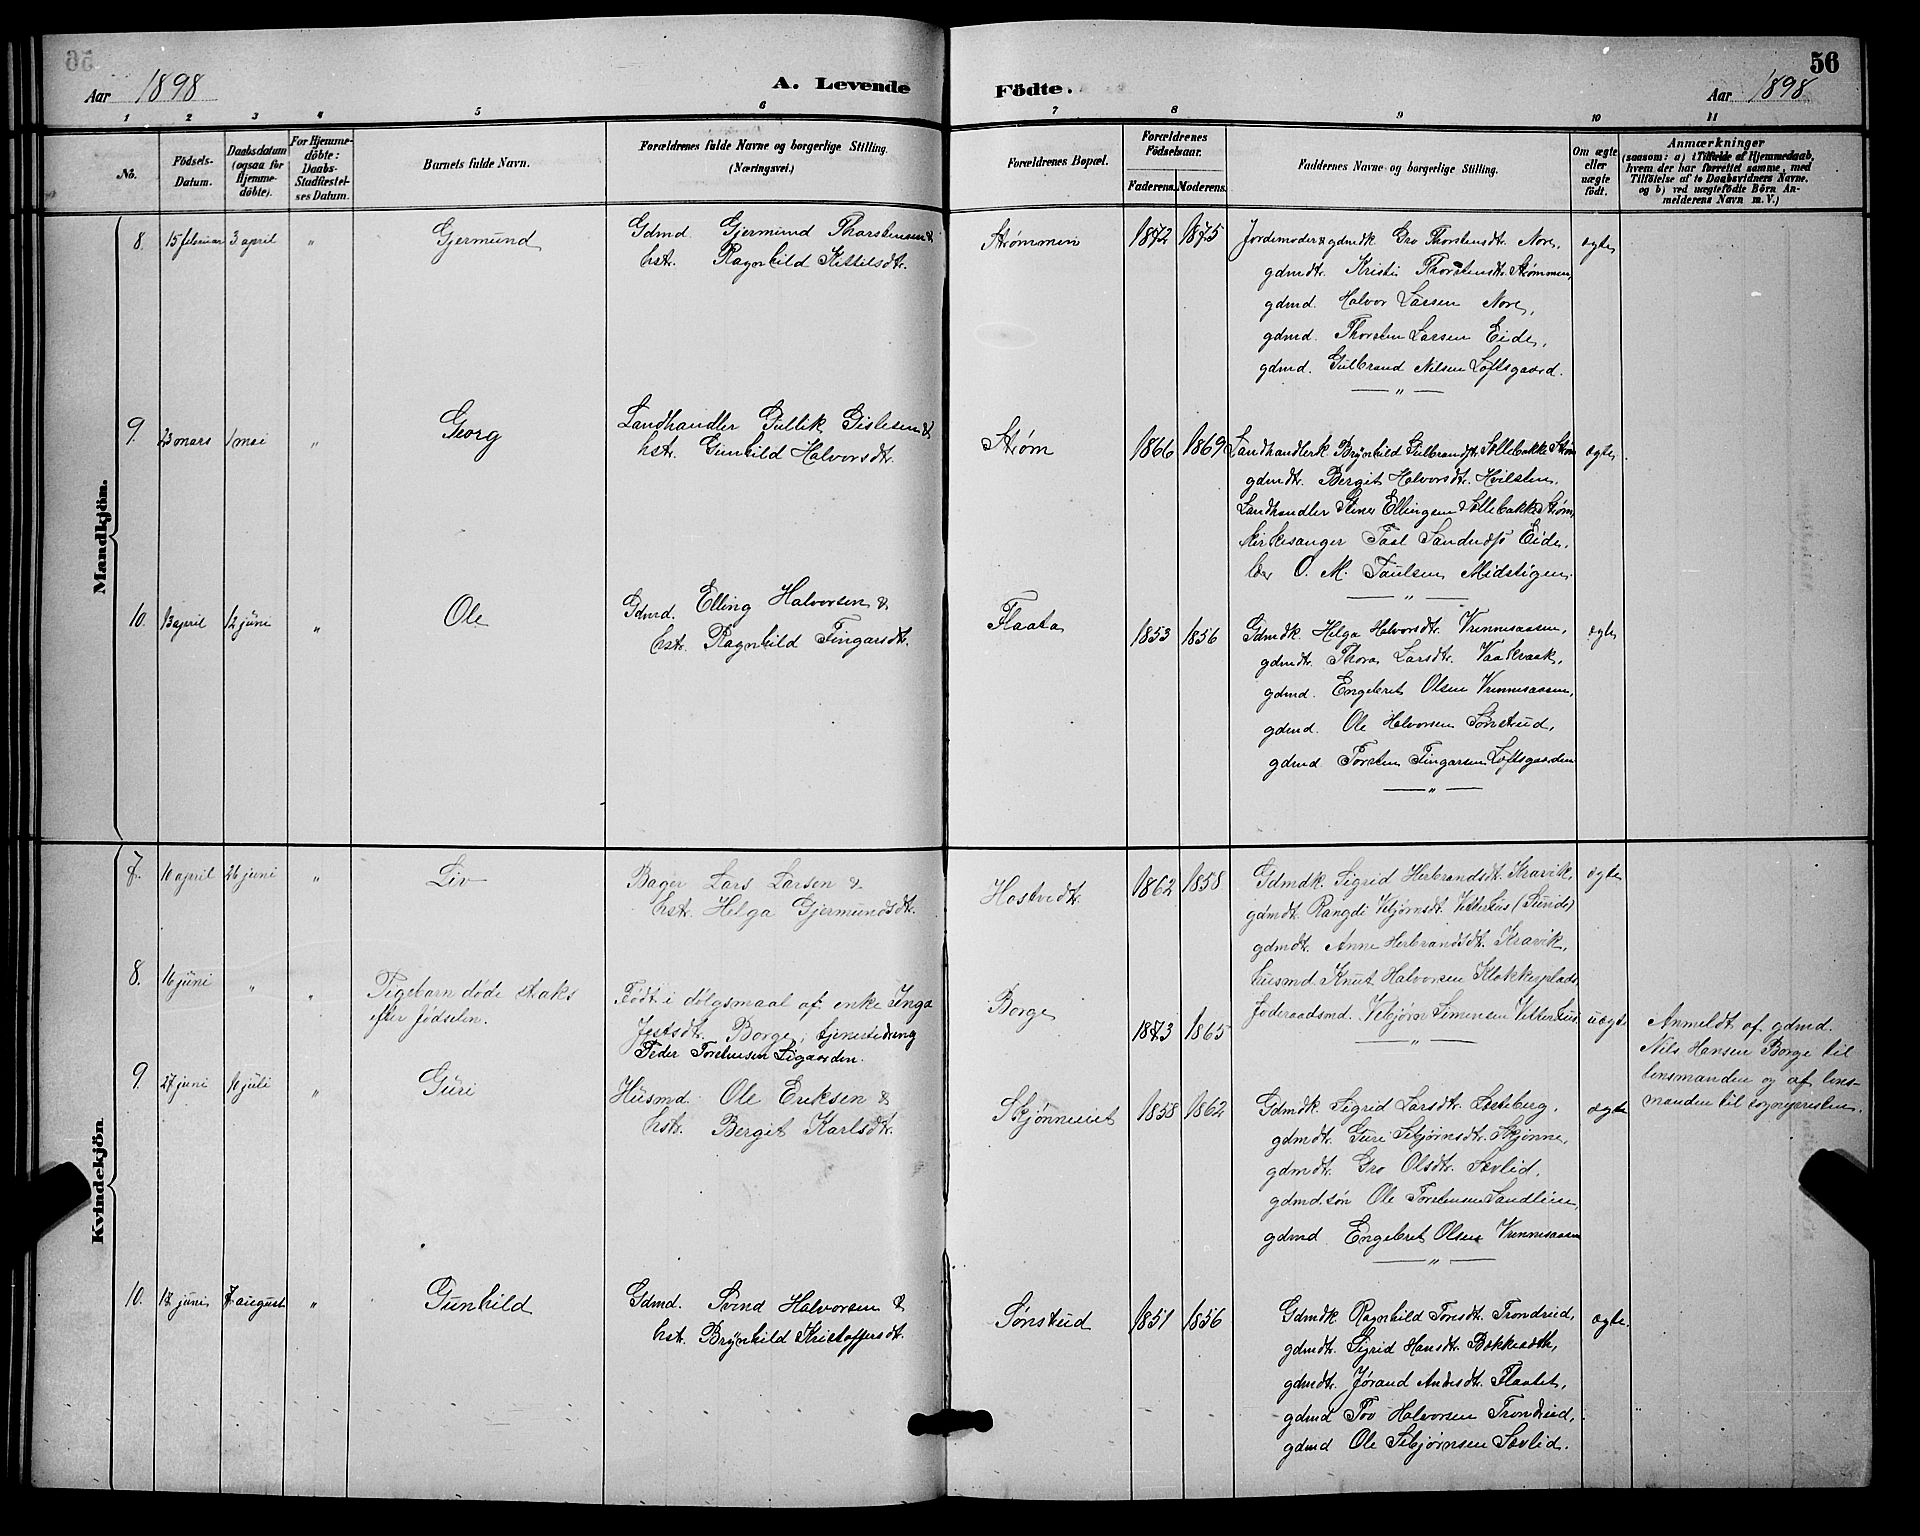 56
Aar 1898
A. Levende Födte.
Aar 1898
1 2 3 4 5 6 7 8 9 10 11
No.
Födsels-Datum.
Daabsdatum (ogsaa for Hjemme-döbte).
For Hjemme-döbte: Daabs-Stadfæstel-ses Datum.
Barnets fulde Navn.
Forældrenes fulde Navne og borgerlige Stilling. (Næringsvei.)
Forældrenes Bopæl.
Forældrenes Födselsaar.
Faderens. Moderens.
Faddernes Navne og borgerlige Stilling.
Om ægte eller uægte födt.
Anmærkninger
(saasom: a) i Tilfælde af Hjemmedaab,
hvem der har forrettet samme, med
Tilföielse af to Daabsvidners Navne,
og b) ved uægtefödte Börn An-
melderens Navn m. V.)
Mandkjön.
8. 15 februar 3 april " Gjermund
Gdmd. Gjermund Thorstensen &
hstr. Ragnhild Kittilsdtr.
Strømmen 1872 1875
Jordemoder & gdmdk Gro Thorstensdtr. Nore,
gdmdtr. Kristi Thorstensdtr. Strømmen,
gdmd. Halvor Larsen Nore,
gdmd. Thorsten Larsen Eide,
gdmd. Gulbrand Nilsen Loftsgaard.
ægte
9. 23 mars 1 mai " Georg
Landhandler Gullik Gislesen &
hstr. Gunhild Halvorsdtr.
Strøm 1866 1869
Landhandlerk Brynhild Gulbrandsdtr. Søllebakke Strøm
gdmdtr. Bergit Halvorsdtr. Hvilsten,
Landhandler Stener Ellingsen Søllebakke Strøm,
Kirkesanger Taal Sandersø Eide,
O. M. Paulsen Midstigen.
ægte
10. 13 april 12 juni " Ole
Gdmd. Elling Halvorsen &
hstr. Ragnhild Fingarsdtr.
Flaata 1853 1856
Gdmdk. Helga Halvorsdtr. Vrennesaasen,
gdmdtr. Thora Larsdtr. Vaakvaak,
gdmd. Engebret Olsen Vrennesaasen,
gdmd. Ole Halvorsen Sønstrud,
gdmd Torsten Fingarsen Loftsgaarden
ægte
Kvindekjön.
7. 10 april 26 juni " Liv
Bager Lars Larsen &
hstr. Helga Gjermundsdtr.
Hostvedt 1862 1858
Gdmdk. Sigrid Herbrandsdtr. Kravik,
gdmdtr. Rangdi Vebjørnsdtr. Vetterhus (Lunde)
gdmdtr. Anne Herbrandsdtr. Kravik,
husmd. Knut Halvorsen Klokkerplads,
føderaadsmd. Vebjørn Simensen Vetterhus
ægte
8. 16 juni " " Pigebarn døde straks
efter fødselen.
Født i dølgsmaal af enke Inga
Borge, tjenestedreng
Peder Torstensen Sigaarden.
Borge 1873 1865
uægte
Anmeldt af gdmd.
Nils Hansen Borge til
lensmanden og af lens-
manden til sognepresten.
9. 27 juni 10 juli " Guri
Husmd. Ole Eriksen &
hstr. Bergit Karlsdtr.
Skjønneiet 1858 1862
Gdmdk. Sigrid Larsdtr. Løsteberg,
gdmdtr. Guri Sebjørnsdtr. Skjønne,
gdmdtr. Gro Olsdtr. Sevlid,
gdmd.søn Ole Torstensen Sandheien,
gdmd. Engebret Olsen Vrennesaasen
ægte
10. 17 juni 7 august " Gunhild
Gdmd. Svend Halvorsen &
hstr. Brynhild Kristoffersdtr.
Sønstrud 1851 1856
Gdmdk Ragnhild Tovsdtr. Trondrud,
gdmdtr. Sigrid Hansdtr. Bekkeseth,
gdmdtr. Jørand Andersdtr. Flaatet,
gdmd Tov Halvorsen Trondrud,
gdmd Ole Sebjørnsen Sevlid.
ægte.